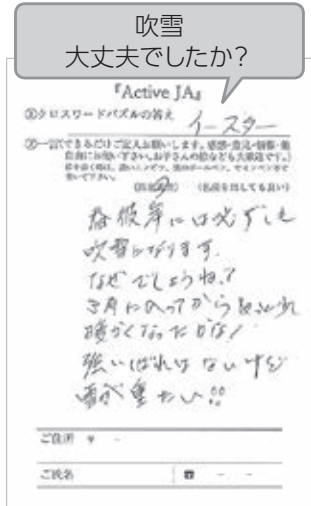 吹雪
大丈夫でしたか?
『Active JA』
①クロスワードパズルの答え イースター
②一言(できるだけご記入お願いします。感想・意見・情報・他
自由にお使い下さい。お子さんの絵なども大歓迎です。)
春彼岸には必ずしも
吹雪になります。
なぜでしょうね?
3月に入ってから
暖かくなったかな!
強い ない
雪が重たい!!
ご住所 〒 -
ご氏名 ☎ - -